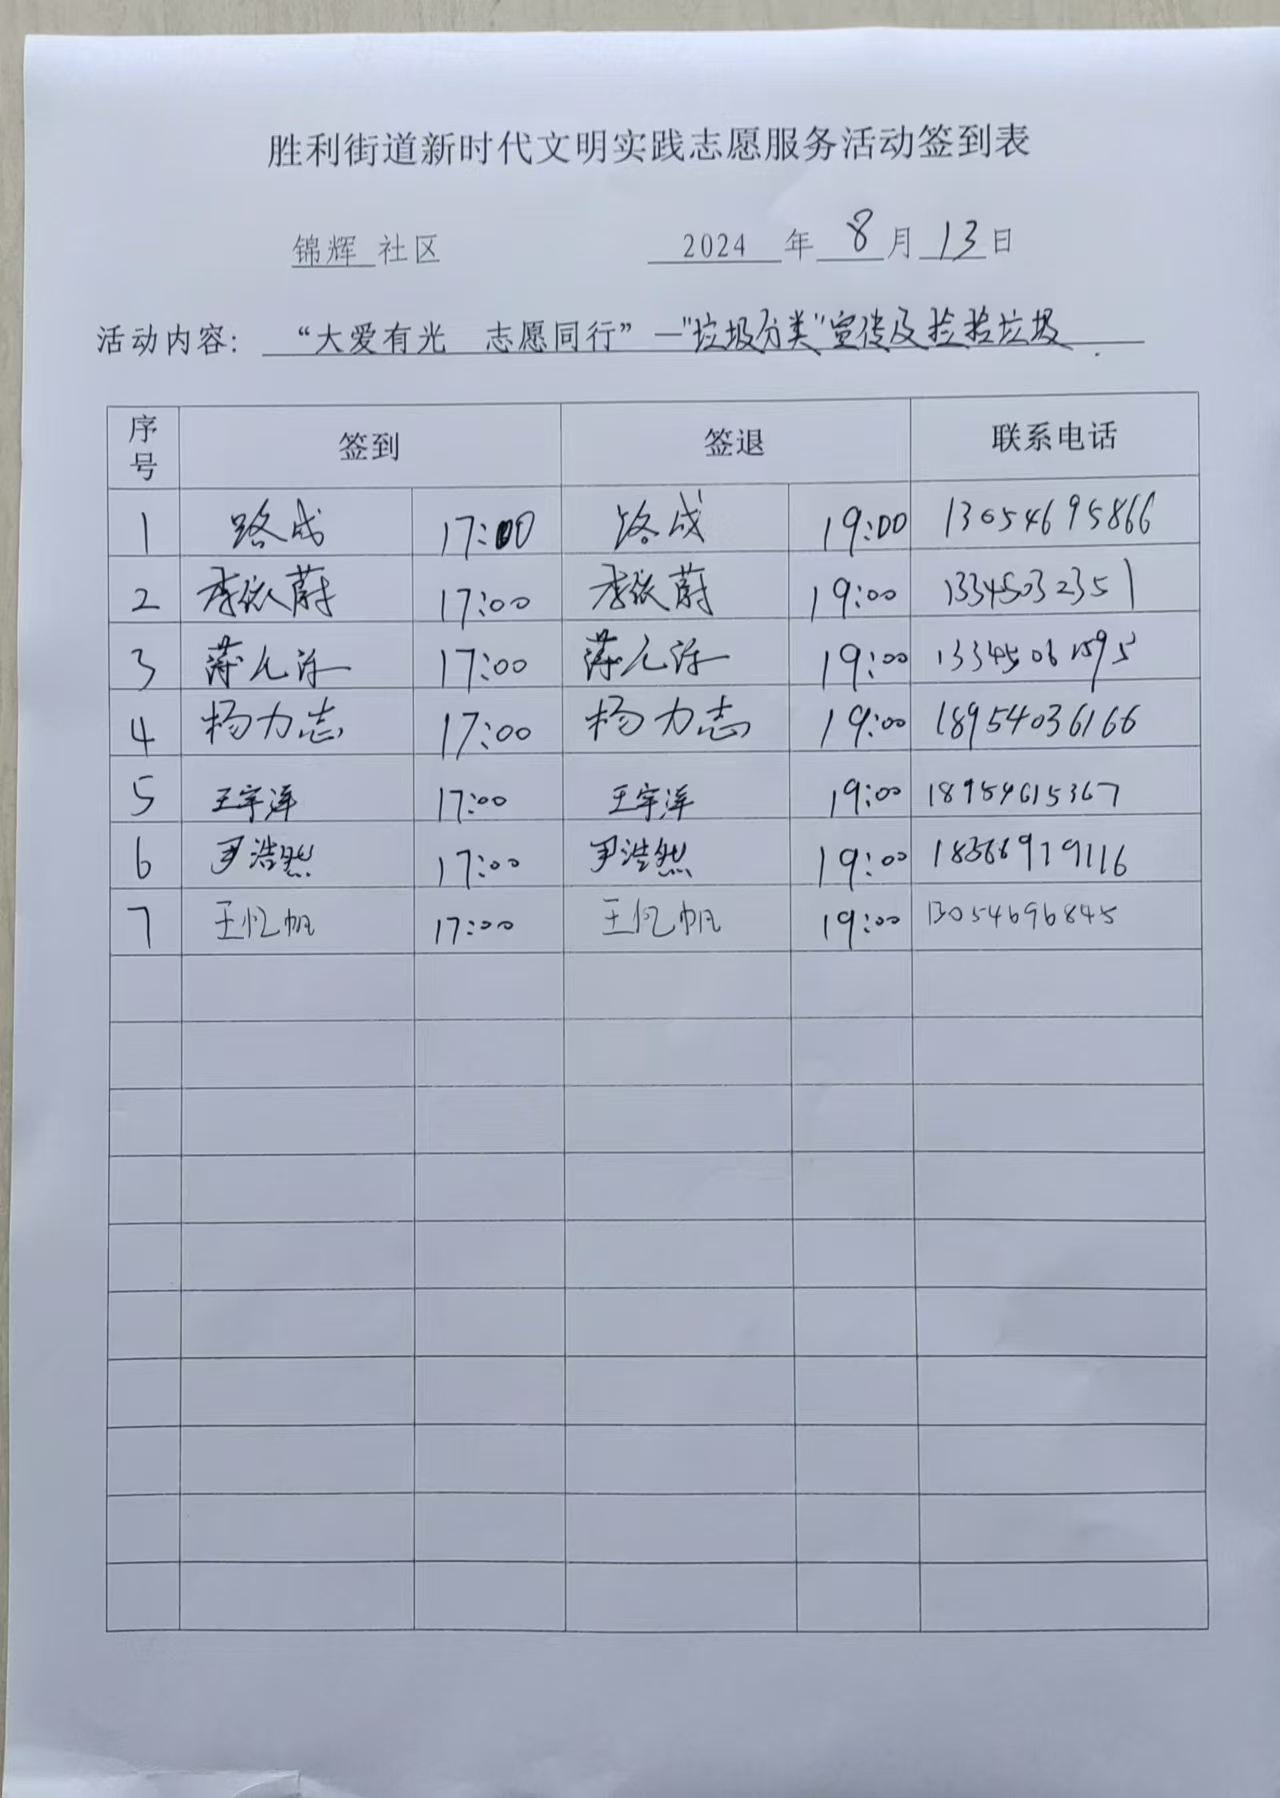 胜利街道新时代文明实践志愿服务活动签到表
锦辉 社区 2024 年 8 月 13 日
活动内容: “大爱有光 志愿同行”—"垃圾分类"宣传及捡拾垃圾
序号 签到 签退 联系电话
1 路成 17:00 路成 19:00 13054695866
2 李依蔚 17:00 李依蔚 19:00 13345032351
3 17:00 19:00
4 杨力志 17:00 杨力志 19:00 18954036166
5 王宇洋 17:00 王宇洋 19:00 18954615367
6 尹浩然 17:00 尹浩然 19:00 18366919116
7 王忆帆 17:00 王忆帆 19:00 13054696845